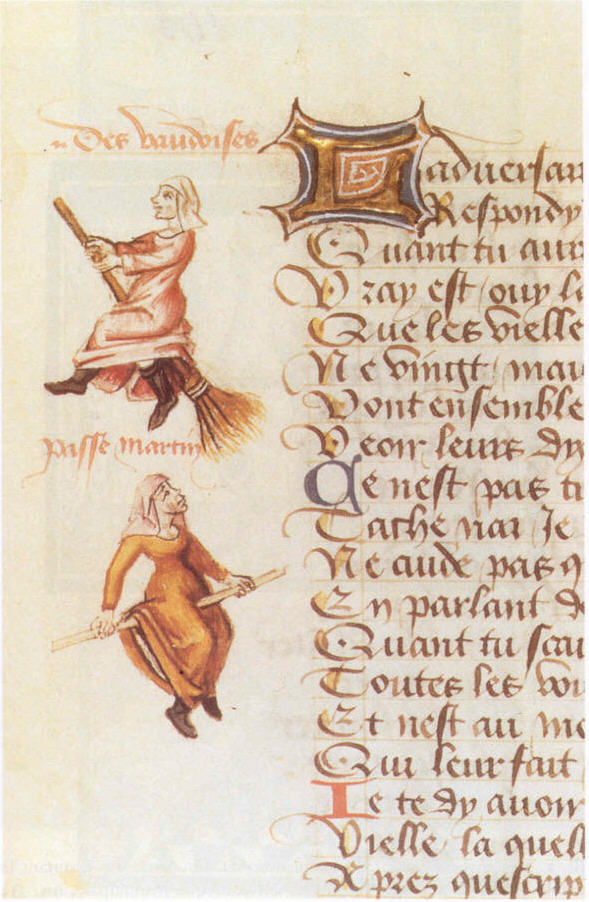 Des vaudoises
Ladversair
Respondy
Quant tu aura
Vray est ouy la
Que les vielle
Ne vingt mai
Vont ensemble
Veoir leurs dy
passe martin
Ce nest pas tr
Tache nai Je
Ne cuide pas q
En parlant de
Quant tu scau
Toutes les voi
Et nest au mo
Qui leur fait
Je te dy avoir
Vielle la quell
Aprez quescrip